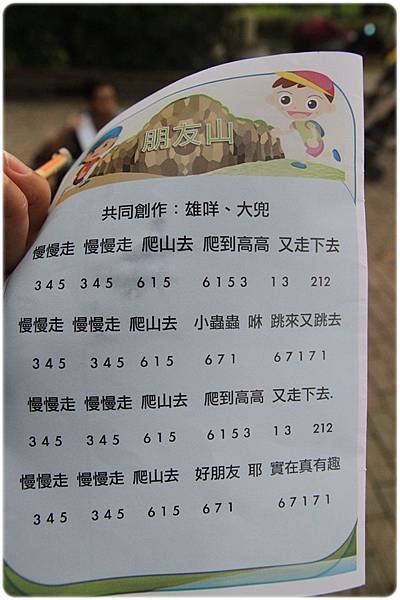 朋友山
共同創作：雄咩、大兜
慢慢走 慢慢走 爬山去 爬到高高 又走下去
3 4 5 3 4 5 6 1 5 6 1 5 3 1 3 2 1 2
慢慢走 慢慢走 爬山去 小蟲蟲 咻 跳來又跳去
3 4 5 3 4 5 6 1 5 6 7 1 6 7 1 7 1
慢慢走 慢慢走 爬山去 爬到高高 又走下去.
3 4 5 3 4 5 6 1 5 6 1 5 3 1 3 2 1 2
慢慢走 慢慢走 爬山去 好朋友 耶 實在真有趣
3 4 5 3 4 5 6 1 5 6 7 1 6 7 1 7 1